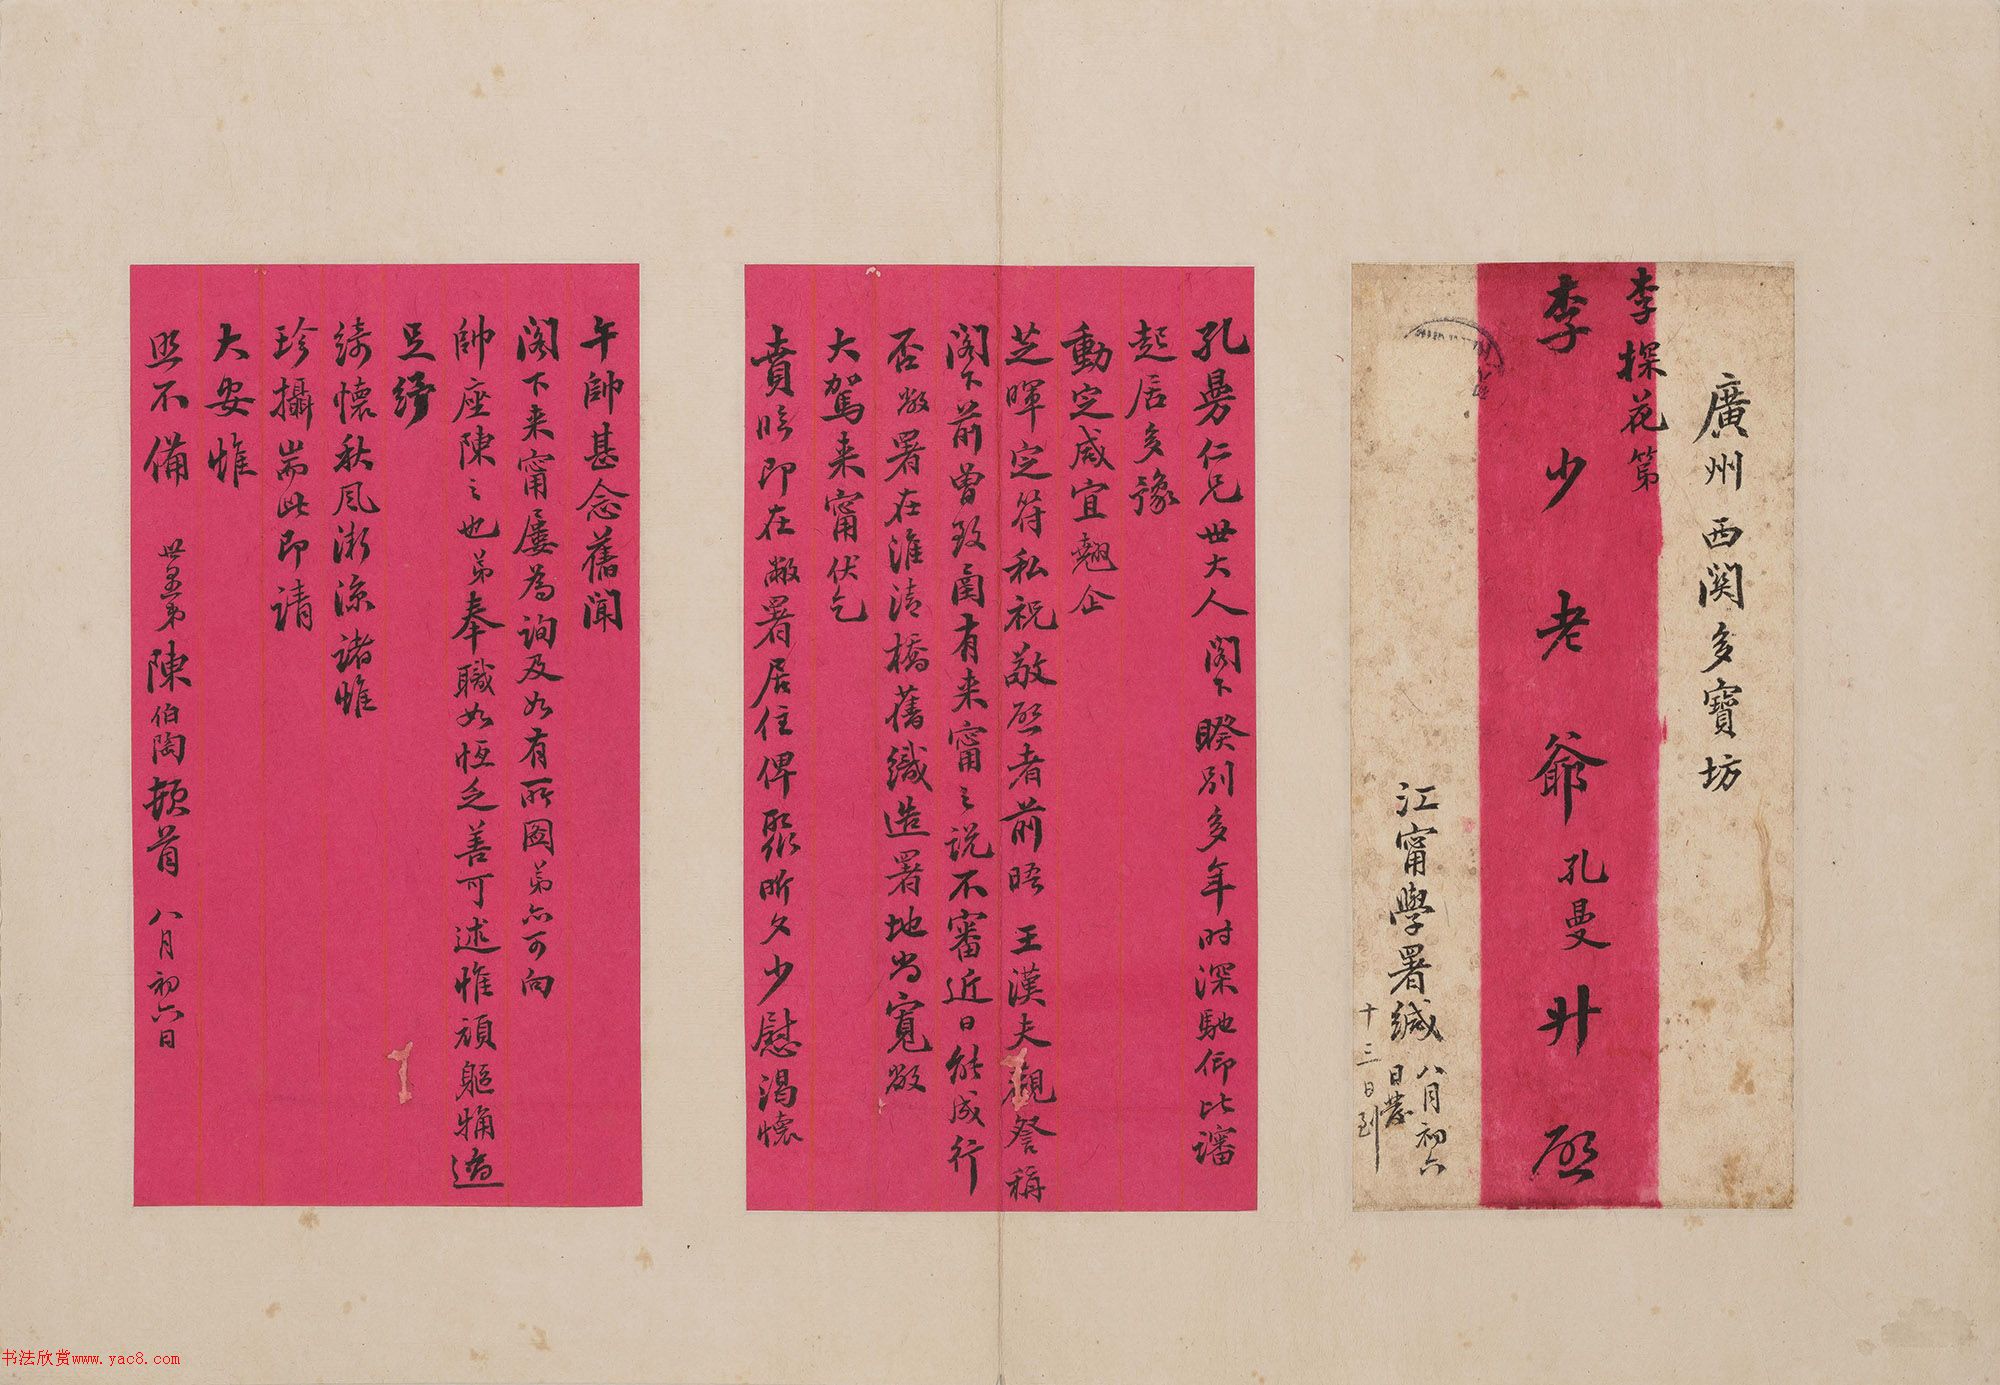 廣州西関多寶坊
李探花第
李少老爺孔曼升啟
江甯學署緘
八月初六
日發
十三日到
孔曼仁兄世大人閣下睽別多年時深馳仰比審
起居多豫
動定咸宜翹企
芝暉定符私祝敬啟者前晤王漢夫觀詧稱
閣下前曾致函有来甯之說不審近日能成行
否敝署在淮清橋舊織造署地尚寬敞
大駕来甯伏乞
賁臨即在敝署居住俾聚昕夕少慰渴懷
午帥甚念舊聞
閣下来甯屢為詢及如有所圖弟亦可向
帥座陳之也弟奉職如恆乏善可述惟頑軀粗適
足紓
綺懷秋風漸涼諸惟
珍攝耑此即請
大安惟
照不備 世愚弟陳伯陶頓首 八月初六日
书法欣赏www.yac8.com